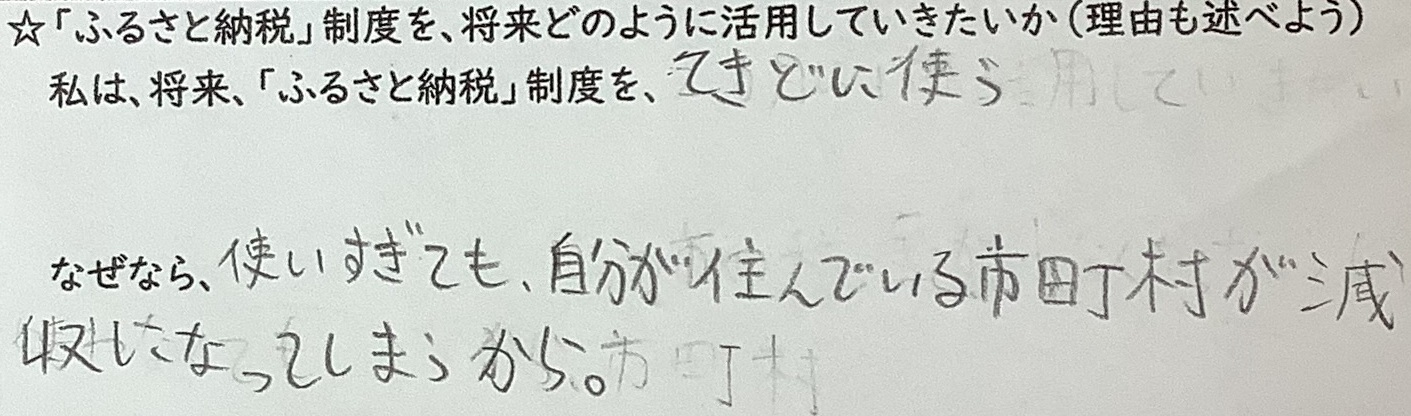 ☆「ふるさと納税」制度を、将来どのように活用していきたいか(理由も述べよう)
私は、将来、「ふるさと納税」制度を、てきどに使う
なぜなら、使いすぎても、自分が住んでいる市町村が減
収になってしまうから。